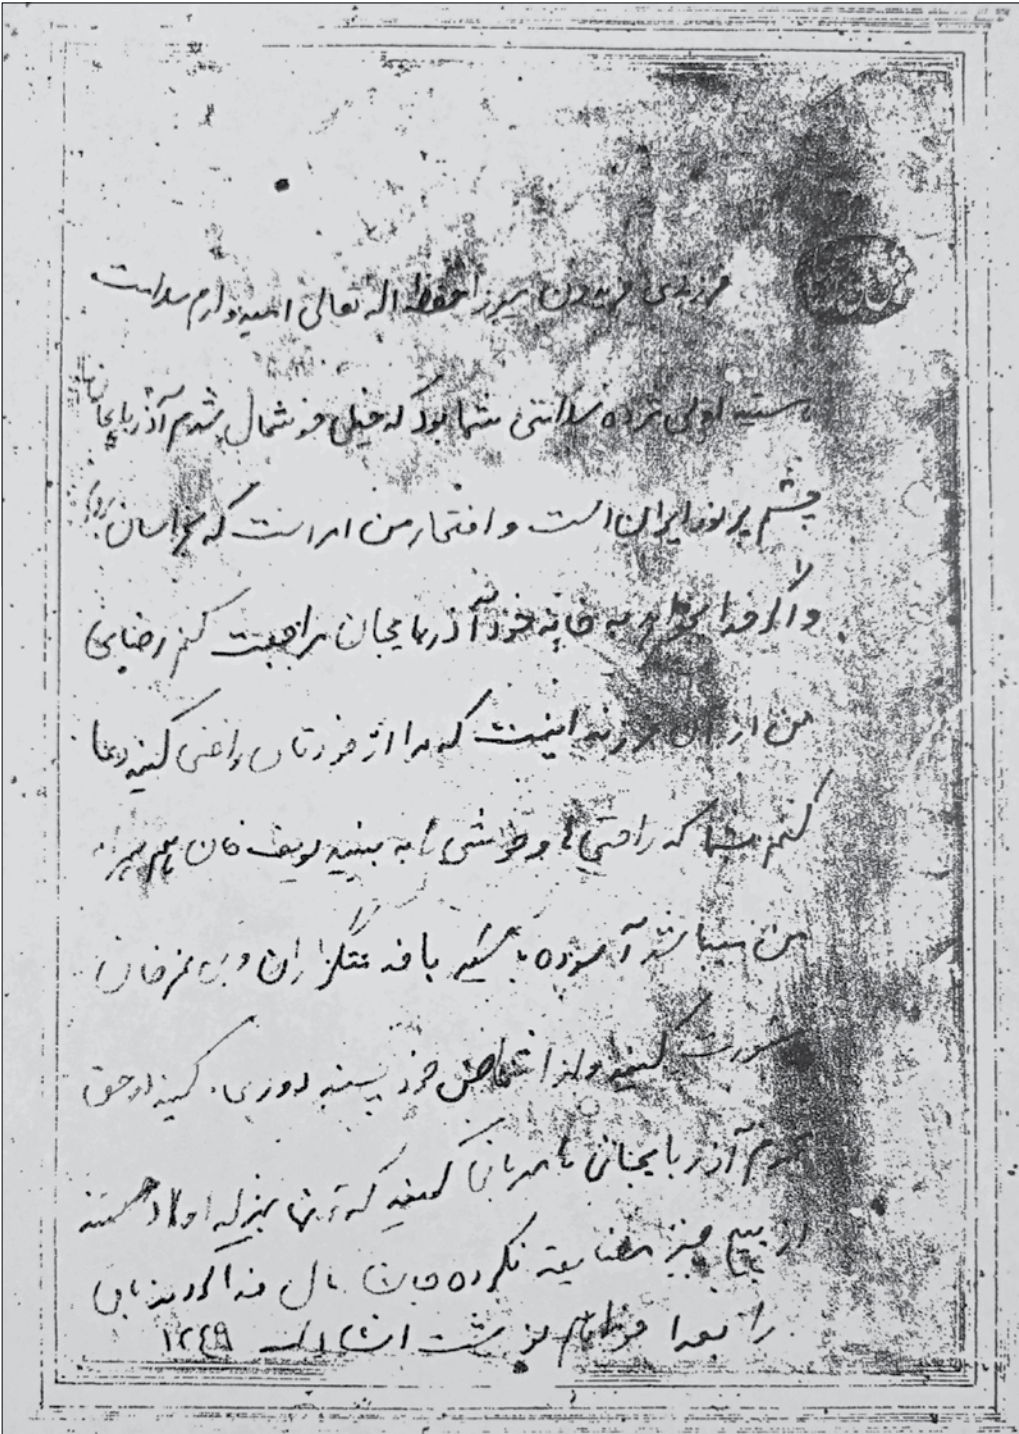 فرزندی فریدون میرزا حفظه اله تعالی امیدوارم سلامت
اولی مژده سلامتی شما بود که خیلی خوشحال شدم آذربایجان
چشم پر نور ایران است و افتخار من این است که خراسان
و اگر خدا بخواهد به خانه خود آذربایجان مراجعت کنم رضایت
من از آن فرزند اینست که مرا از خودتان راضی کنید دعا
کنم شما که راحتی و خوشی را به بینید یوسف خان
من میباشد آسوده باشید با خدمتگزاران و بی غرضان
مشورت کنید و از اشخاص خود پسند دوری کنید در حق
مردم آذربایجان مهربانی کنید که آنها بمنزله اولاد هستند
از هیچ چیز مضایقه نکرده جان مال فدا کردند
را بعدا خواهم نوشت انشااله ۱۲٤۹